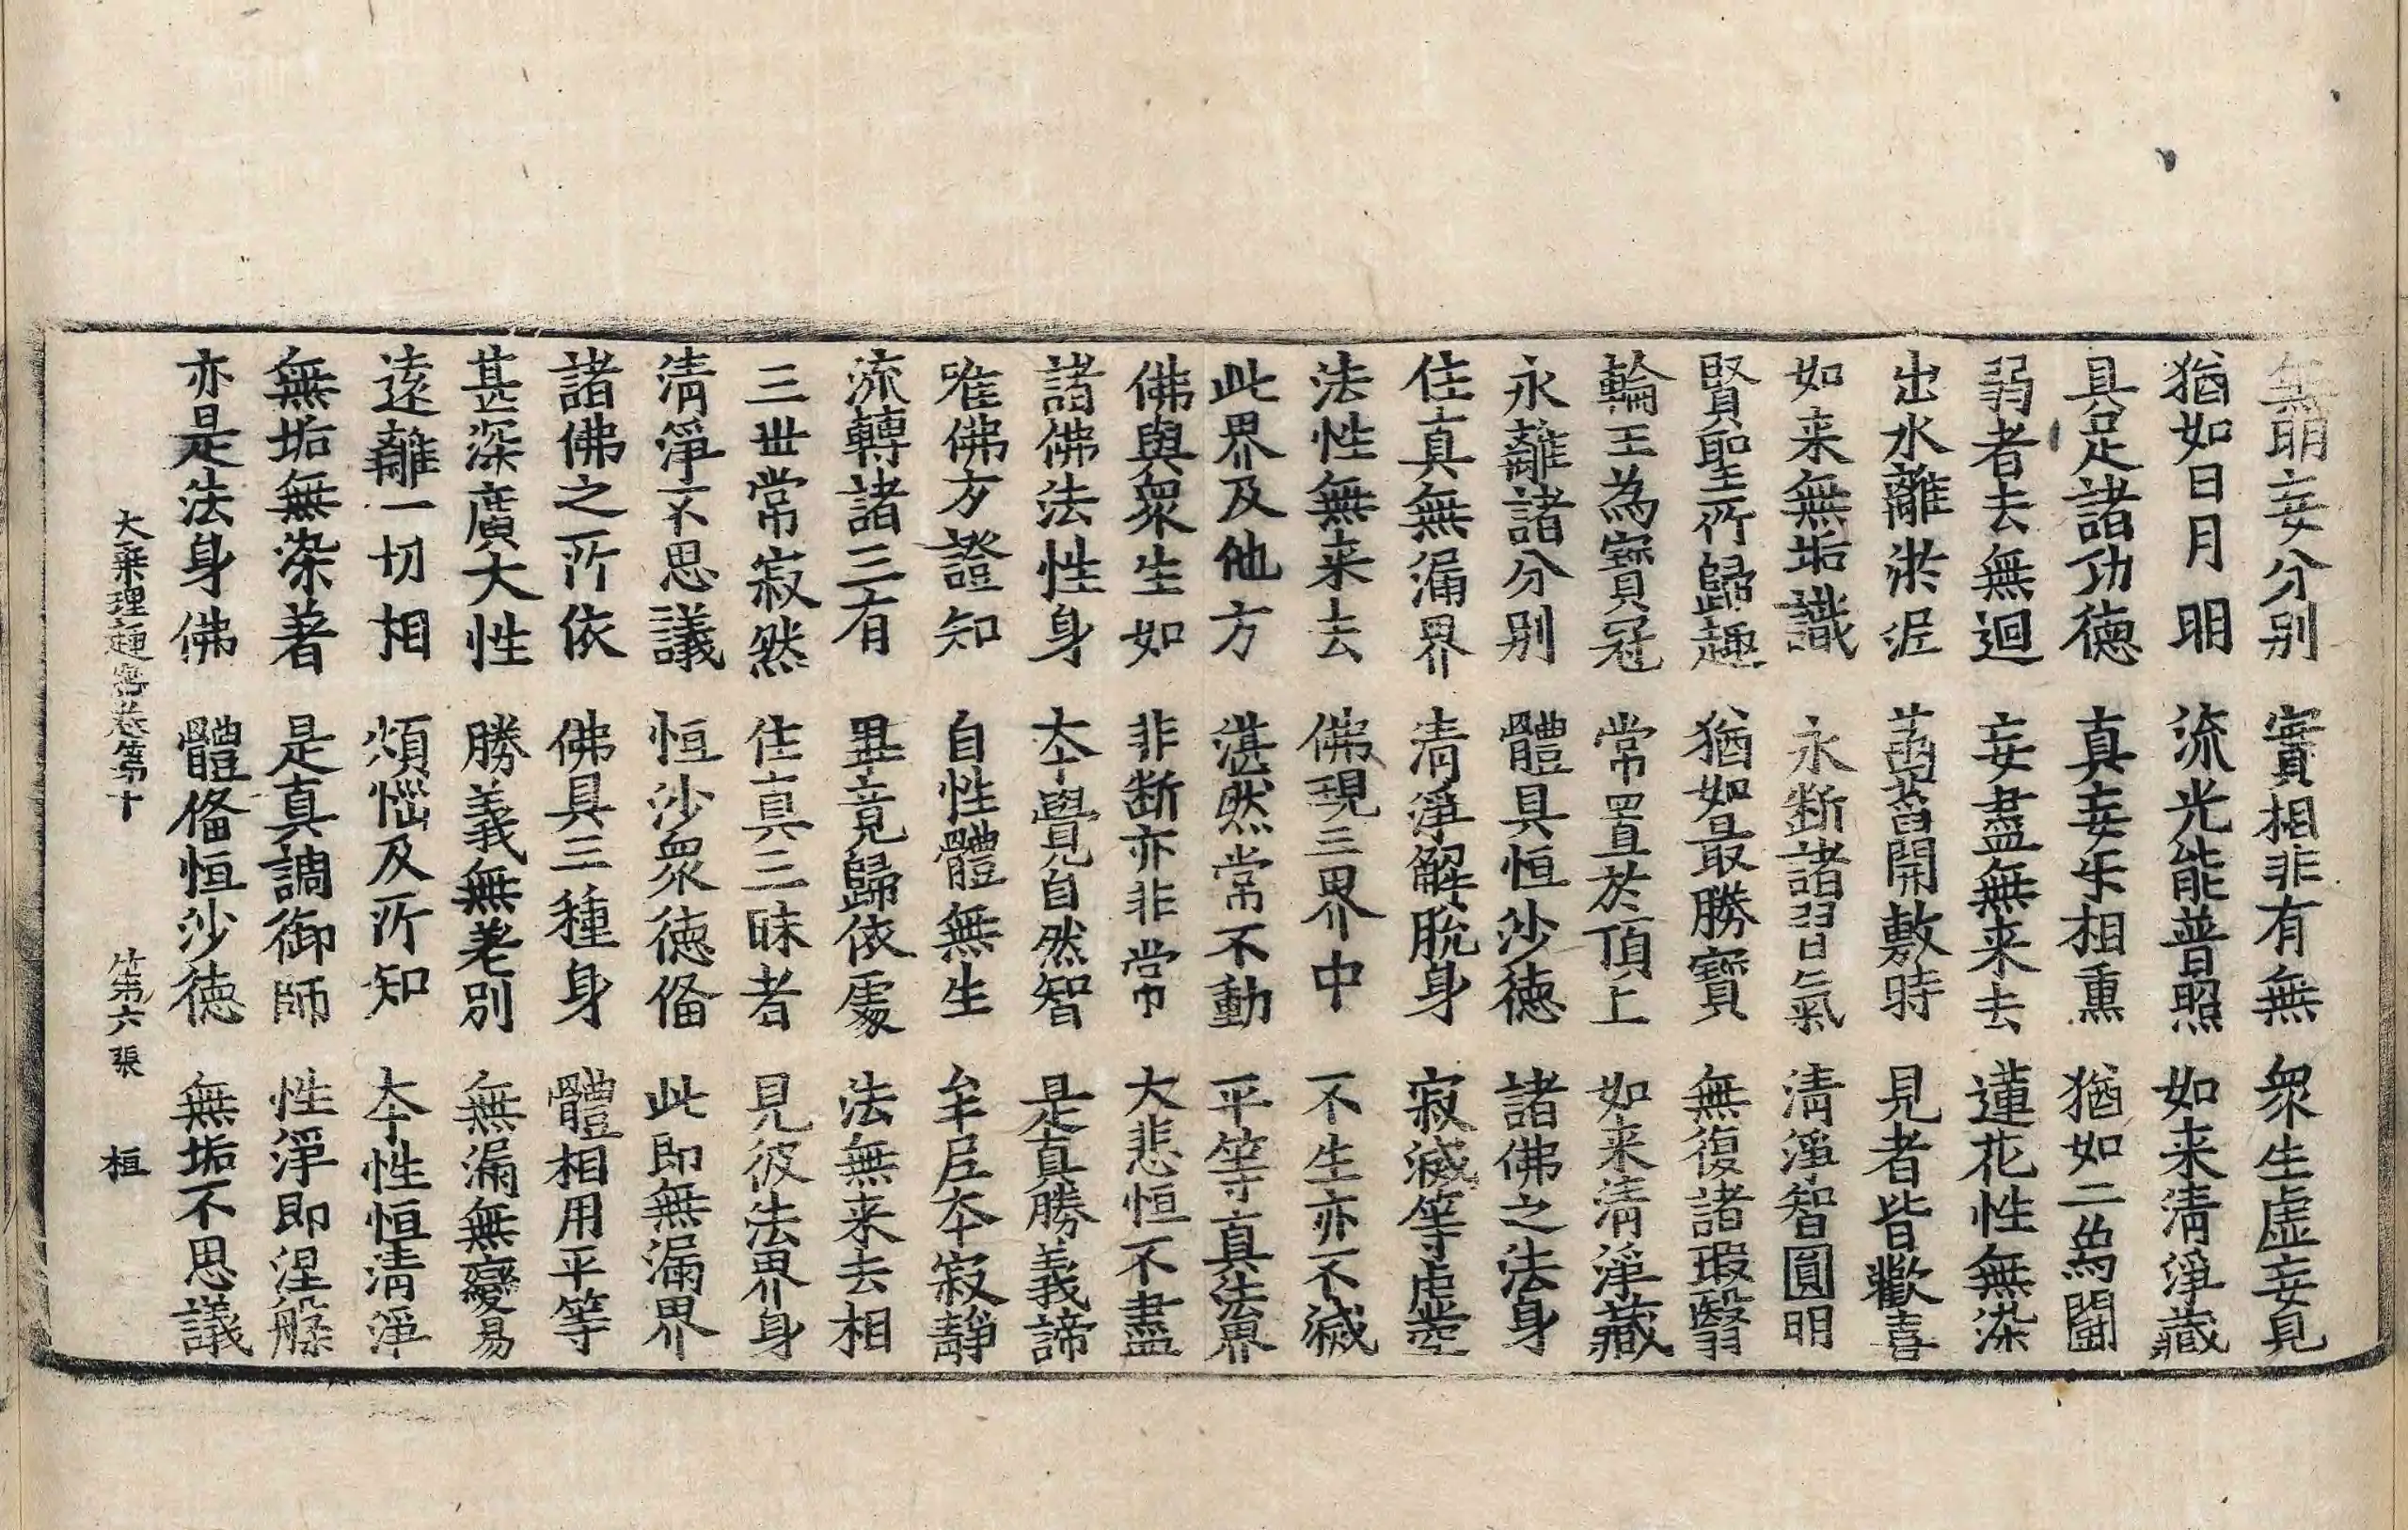 無明妄分别 實相非有無 衆生虛妄見
猶如日月明 流光能普照 如来清淨藏
具足諸功德 真妄㸦相熏 猶如二象鬬
弱者去無迴 妄盡無来去 蓮花性無染
出水離淤泥 菡萏開敷時 見者皆歡喜
如来無垢識 永断諸習氣 清淨智圓明
賢聖所歸趣 猶如最勝寶 無復諸瑕翳
輪王為寳冠 常置於頂上 如来清淨藏
永離諸分别 體具恒沙德 諸佛之法身
住真無漏界 清淨解脫身 寂滅等虛空
法性無来去 佛現三界中 不生亦不滅
此界及他方 湛然常不動 平等真法界
佛與衆生如 非断亦非常 大悲恒不盡
諸佛法性身 夲覺自然智 是真勝義諦
唯佛方證知 自性體無生 牟尼夲寂靜
流轉諸三有 畢竟歸依處 法無来去相
三世常寂然 住真三昧者 見彼法界身
清淨不思議 恒沙衆德俻 此即無漏界
諸佛之所依 佛具三種身 體相用平等
甚深廣大性 勝義無差别 無漏無變易
遠離一切相 煩惱及所知 夲性恒清淨
無垢無染著 是真調御師 性淨即涅槃
亦是法身佛 體俻恒沙德 無垢不思議
大乗理趣密卷第十 第六張 桓